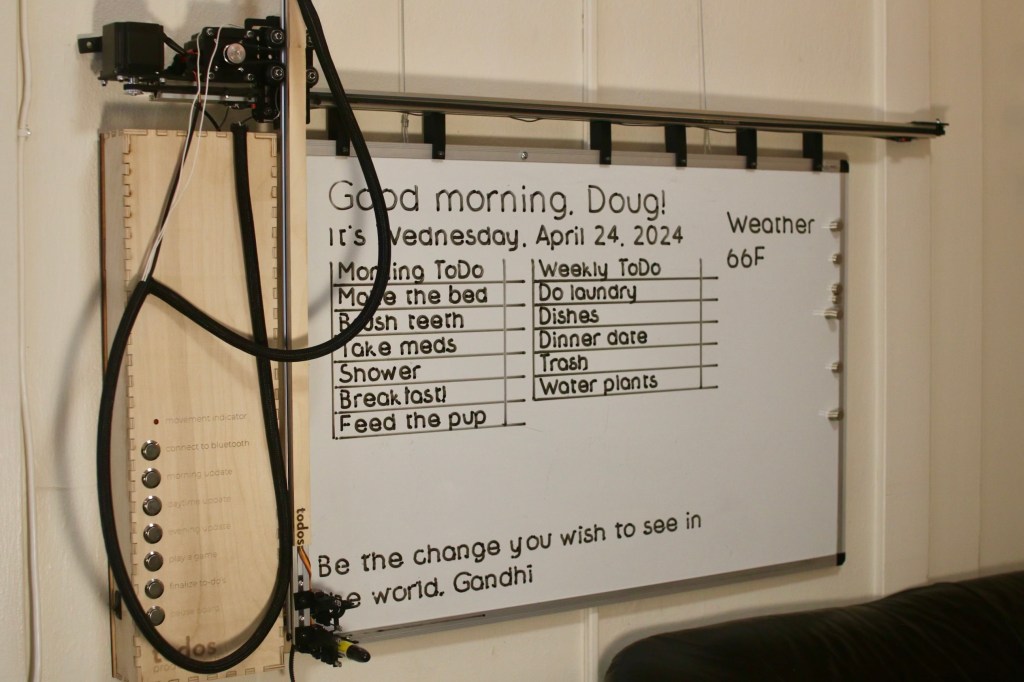 Good morning, Doug!
It's Wednesday, April 24, 2024
Weather
66F
Morning ToDo
Make the bed
Brush teeth
Take meds
Shower
Breakfast!
Feed the pup
Weekly ToDo
Do laundry
Dishes
Dinner date
Trash
Water plants
Be the change you wish to see in
the world, Gandhi
movement indicator
connect to bluetooth
morning update
daytime update
evening update
play a game
todos
todos